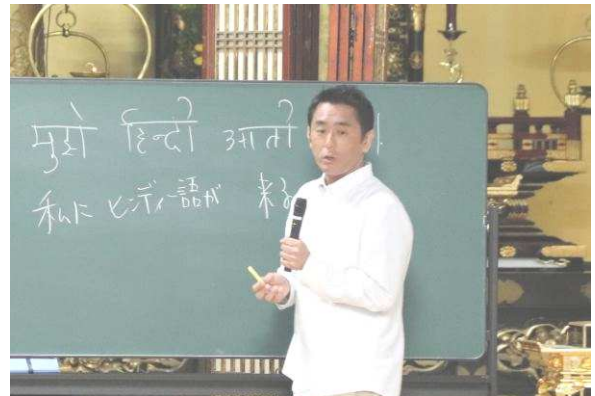 मुझे हिन्दी आती
私に ヒンディー語が 来る